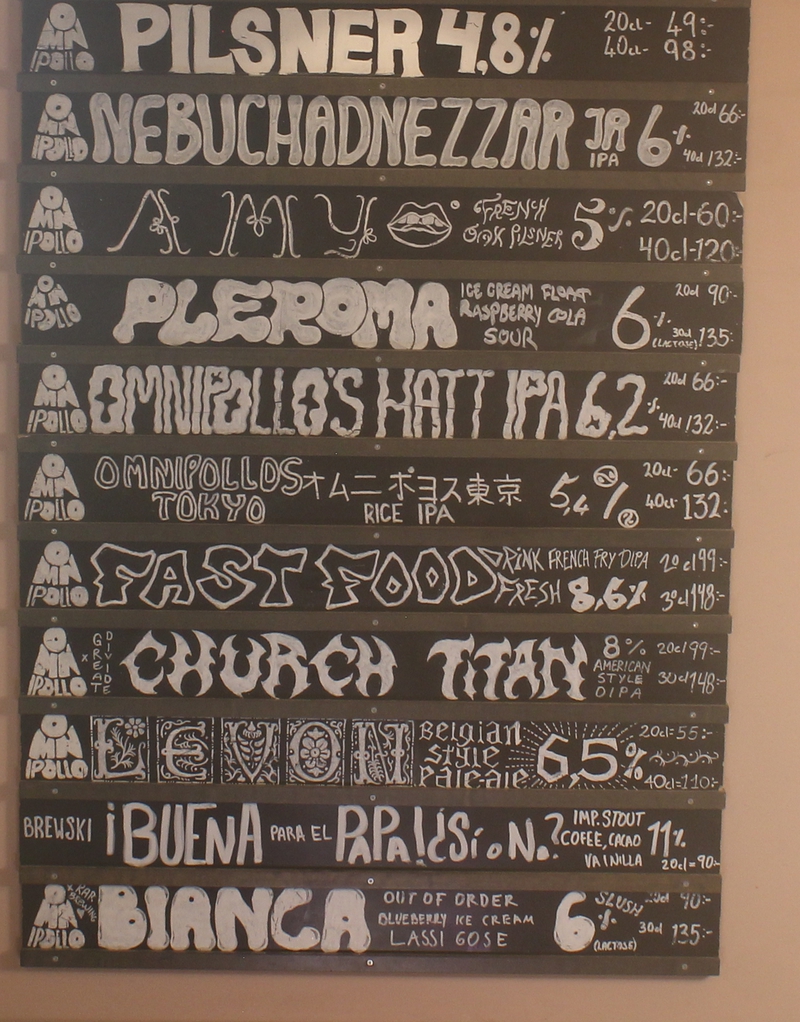 OMNIPOLLO PILSNER 4,8% 20cl- 49:-
40cl- 98:-
OMNIPOLLO NEBUCHADNEZZAR JR IPA 6% 20cl 66:-
40cl 132:-
OMNIPOLLO AMY FRENCH OAK PILSNER 5% 20cl-60:-
40cl-120:-
OMNIPOLLO PLEROMA ICE CREAM FLOAT 6% 20cl 90:-
RASPBERRY COLA
SOUR (LACTOSE) 30cl 135:-
OMNIPOLLO OMNIPOLLO'S HATT IPA 6,2% 20cl 66:-
40cl 132:-
OMNIPOLLO OMNIPOLLOS オムニポヨス東京 5,4% 20cl- 66:-
TOKYO RICE IPA 40cl- 132:-
OMNIPOLLO FAST FOOD PINK FRENCH FRY DIPA 20cl 99:-
FRESH 8,6% 30cl 148:-
OMNIPOLLO x GREAT DIVIDE CHURCH TITAN 8% 20cl 99:-
AMERICAN STYLE DIPA 30cl 148:-
OMNIPOLLO LEVON Belgian style pale ale 6,5% 20cl=55:-
40cl=110:-
BREWSKI ¡BUENA PARA EL PAPA!USioN.? IMP. STOUT
COFEE, CACAO 11%
VAINILLA 20cl=90:-
OMNIPOLLO BIANCA OUT OF ORDER 6% SLUSH 90:-
BLUEBERRY ICE CREAM
LASSI GOSE (LACTOSE) 30cl 135:-